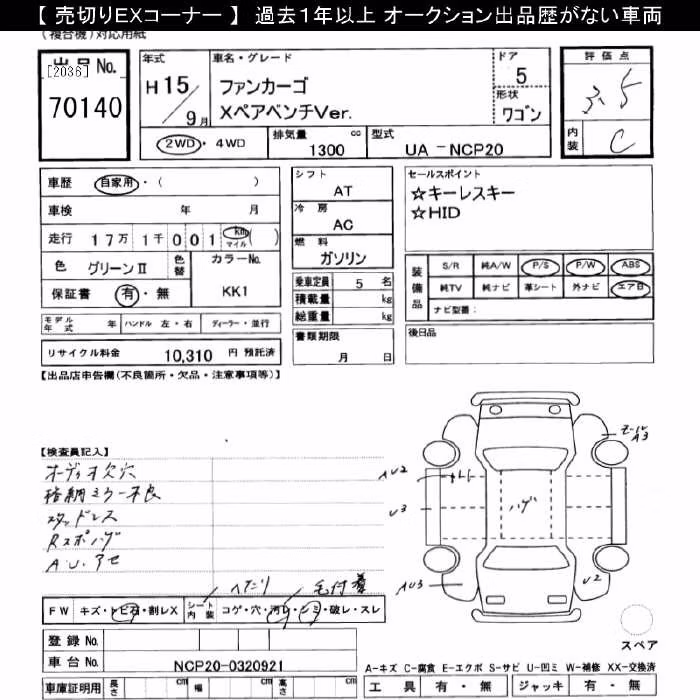 【 売切りEXコーナー 】 過去１年以上 オークション出品歴がない車両
(複合機)対応用紙
出品No.
[2036]
70140
年式
H 15
9月
車名・グレード
ファンカーゴ
XペアベンチVer.
ドア
5
形状
ワゴン
2WD・4WD
排気量 cc
1300
型式
UA - NCP20
評価点
3.5
内装
C
車歴 自家用・( )
車検 年 月
走行 17万 1千 0 0 1 km マイル ( )
色 グリーンⅡ
色替
カラーNo.
KK1
保証書 有・無
モデル年式 年
ハンドル 左・右
ディーラー・並行
リサイクル料金 10,310 円 預託済
シフト
AT
冷房
AC
燃料
ガソリン
乗車定員 5 名
積載量 kg
総重量 kg
書類期限
月 日
セールスポイント
☆キーレスキー
☆HID
装備品
S/R 純A/W P/S P/W ABS
純TV 純ナビ 革シート 外ナビ エア日
ナビ型番:
後日品
【出品店申告欄(不良箇所・欠品・注意事項等)】
【検査員記入】
オーディオ欠穴
格納ミラー不良
スタッドレス
Rスポハゲ
A.U.アセ
ヘタリ
毛付着
FW キズ・トビ石・割レX
シート内装 コゲ・穴・汚レ・シミ・破レ・スレ
登録No.
車台No. NCP20-0320921
車庫証明用 長さ cm 幅 cm 高さ cm
AU2
U3
AU3
ハゲ
モール
A3
U2
スペア
A-キズ C-腐食 E-エクボ S-サビ U-凹ミ W-補修 XX-交換済
工具 有・無 ジャッキ 有・無